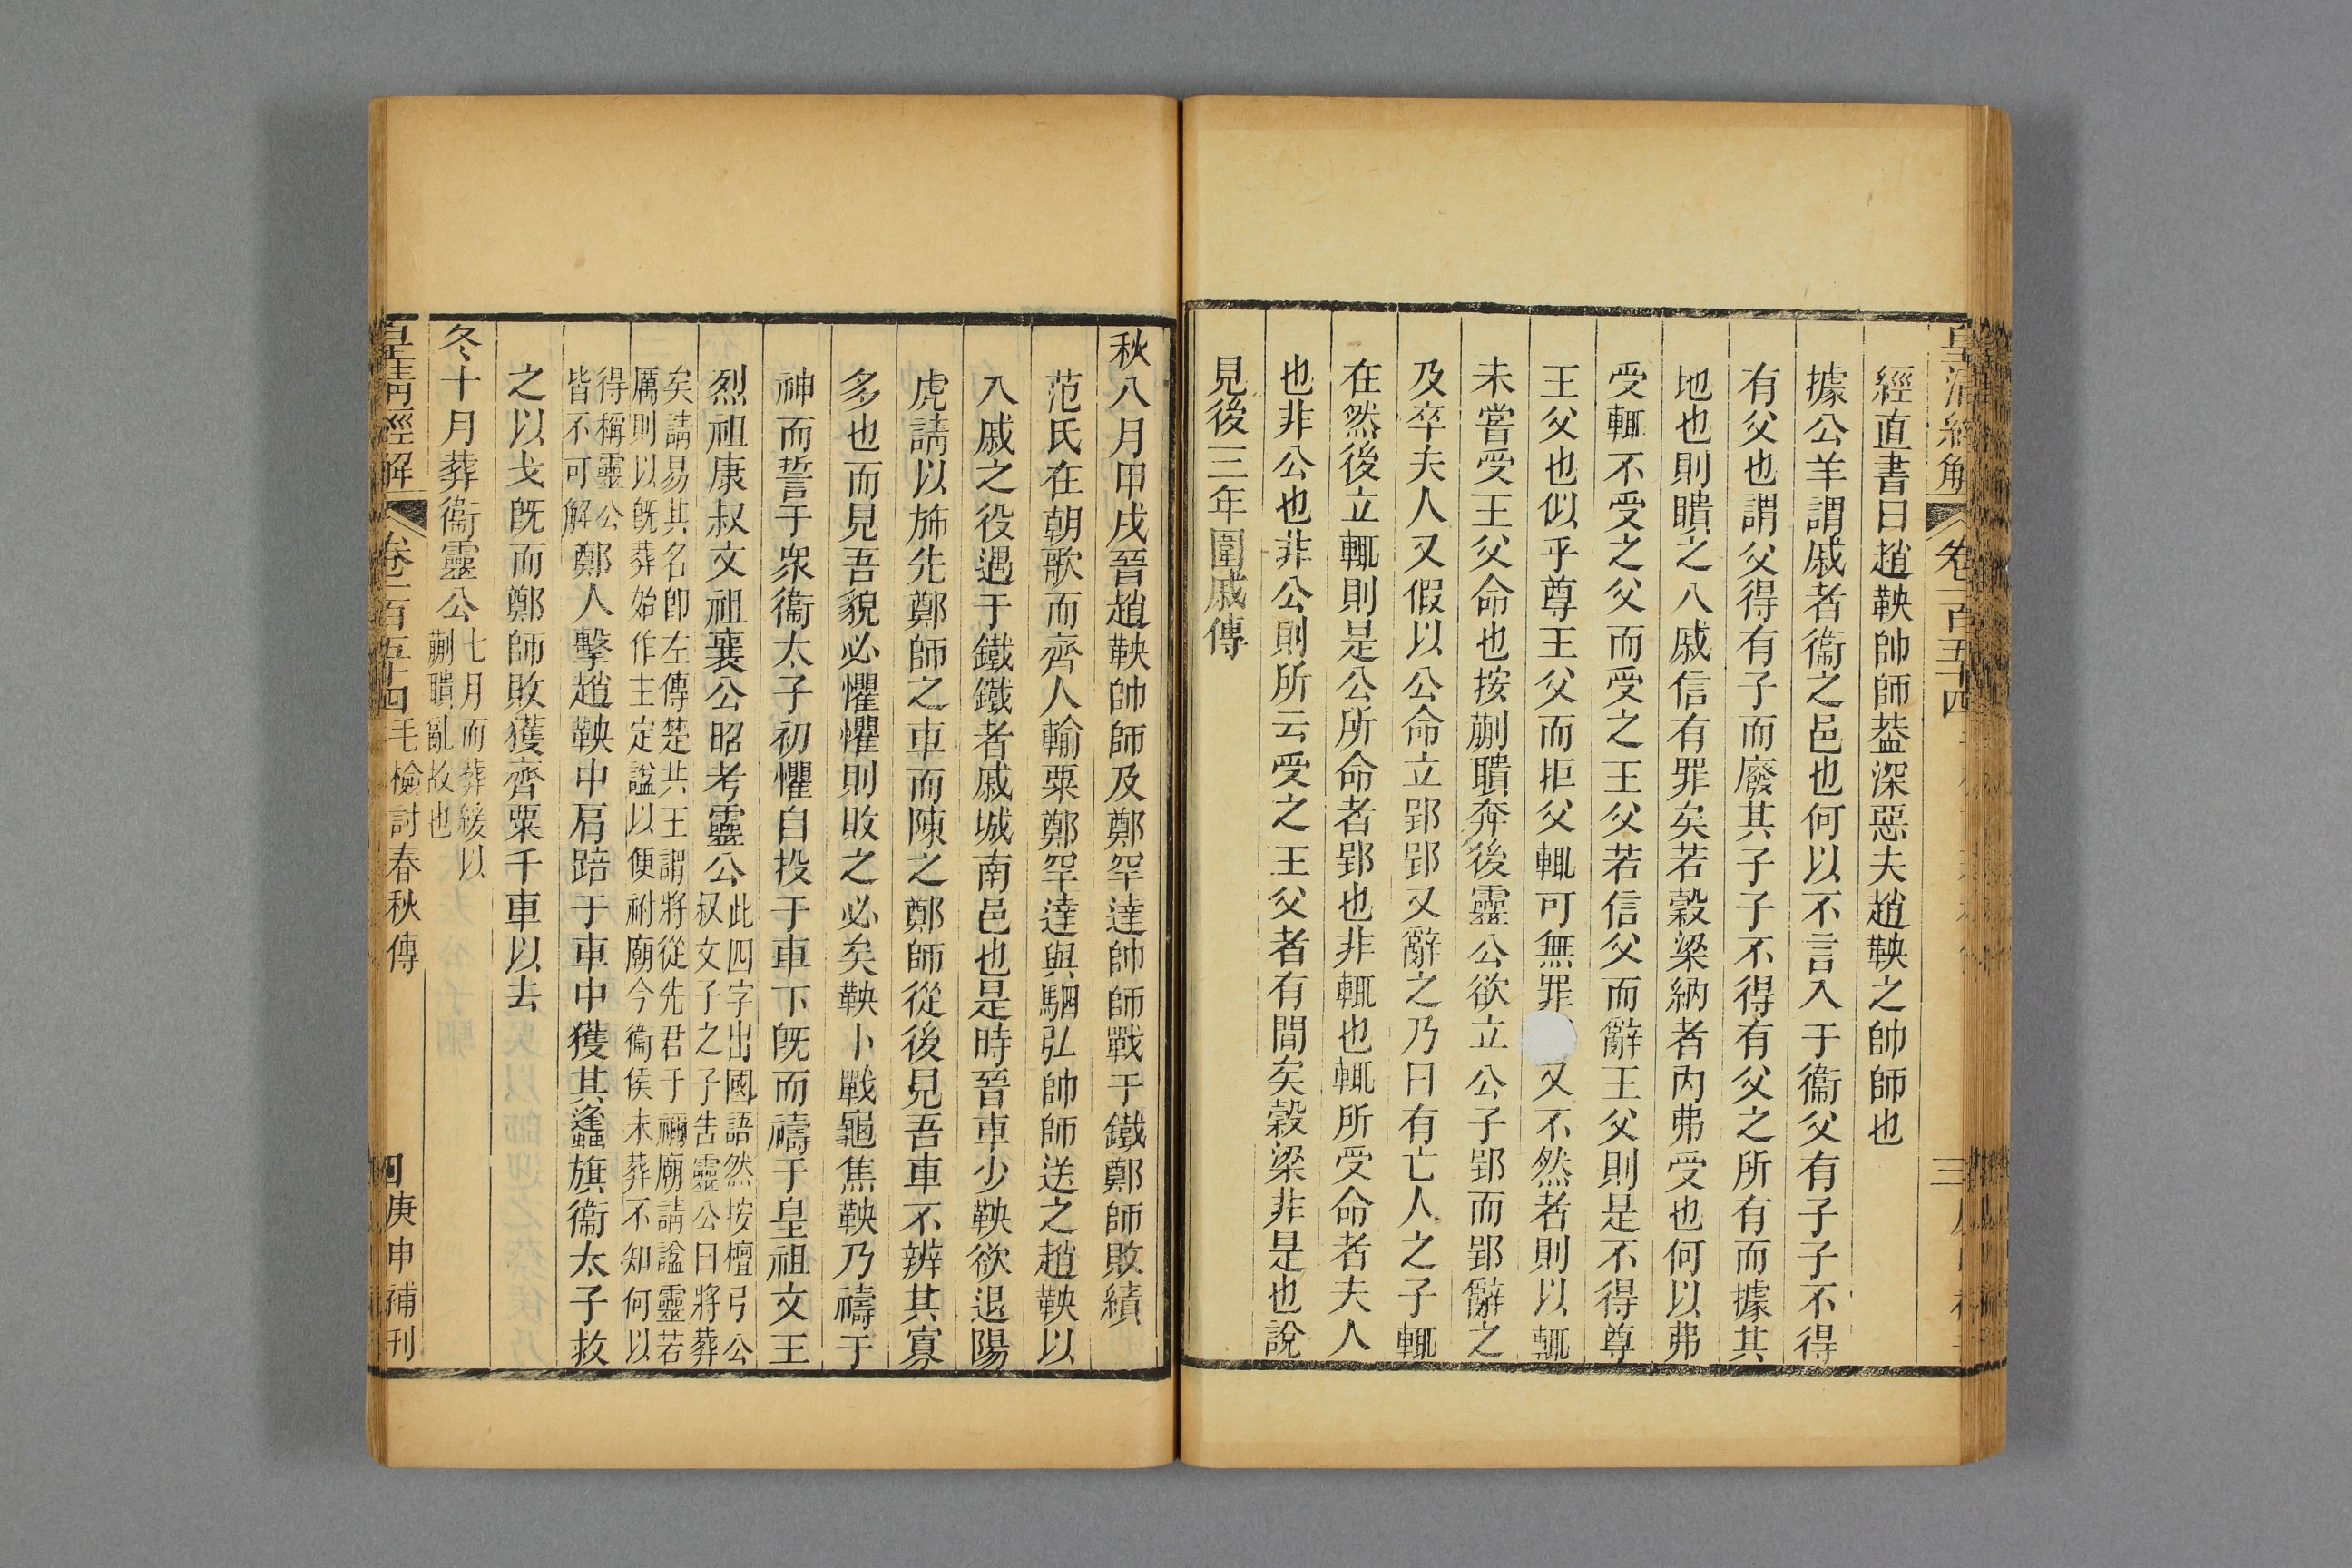 經直書曰趙鞅帥師葢深惡夫趙鞅之帥師也
據公羊謂戚者衞之邑也何以不言入于衞父有子子不得
有父也謂父得有子而廢其子子不得有父之所有而據其
地也則聵之入戚信有罪矣若穀梁納者內弗受也何以弗
受輒不受之父而受之王父若信父而辭王父則是不得尊
王父也似乎尊王父而拒父輒可無罪又不然者則以輒
未嘗受王父命也按蒯聵奔後靈公欲立公子郢而郢辭之
及卒夫人又假以公命立郢郢又辭之乃曰有亡人之子輒
在然後立輒則是公所命者郢也非輒也輒所受命者夫人
也非公也非公則所云受之王父者有間矣穀梁非是也說
見後三年圍戚傳
秋八月甲戌晉趙鞅帥師及鄭罕達帥師戰于鐵鄭師敗績
范氏在朝歌而齊人輸粟鄭罕達與駟弘帥師送之趙鞅以
入戚之役遇于鐵鐵者戚城南邑也是時晉車少鞅欲退陽
虎請以斾先鄭師之車而陳之鄭師從後見吾車不辨其寡
多也而見吾貌必懼懼則敗之必矣鞅卜戰龜焦鞅乃禱于
神而誓于眾衞太子初懼自投于車下旣而禱于皇祖文王
烈祖康叔文祖襄公昭考靈公此四字出國語然按檀弓公
叔文子之子吿靈公曰將葬
矣請易其名卽左傳楚共王謂將從先君于禰廟請諡靈若
厲則以旣葬始作主定諡以便祔廟今衞侯未葬不知何以
得稱靈公
皆不可解鄭人擊趙鞅中肩踣于車中獲其蠭旗衞太子救
之以戈旣而鄭師敗獲齊粟千車以去
冬十月葬衞靈公七月而葬緩以
蒯聵亂故也
皇淸經解 卷一百五十四 毛檢討春秋傳 四 庚申補刊